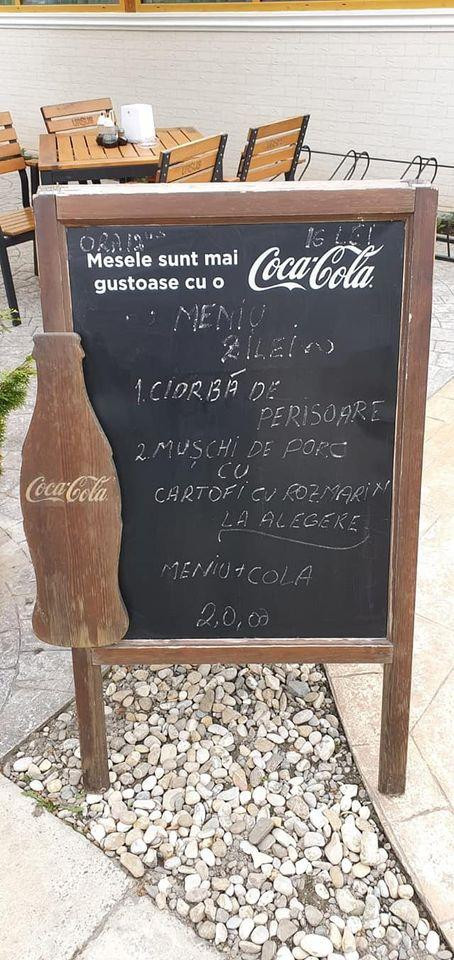 URSUS
ORA 12
16 LEI
Mesele sunt mai
gustoase cu o
Coca-Cola
MENIU
ZILEI
1. CIORBĂ DE
PERISOARE
2. MUȘCHI DE PORC
CU
CARTOFI CU ROZMARIN
LA ALEGERE
MENIU + COLA
20,00
Coca-Cola